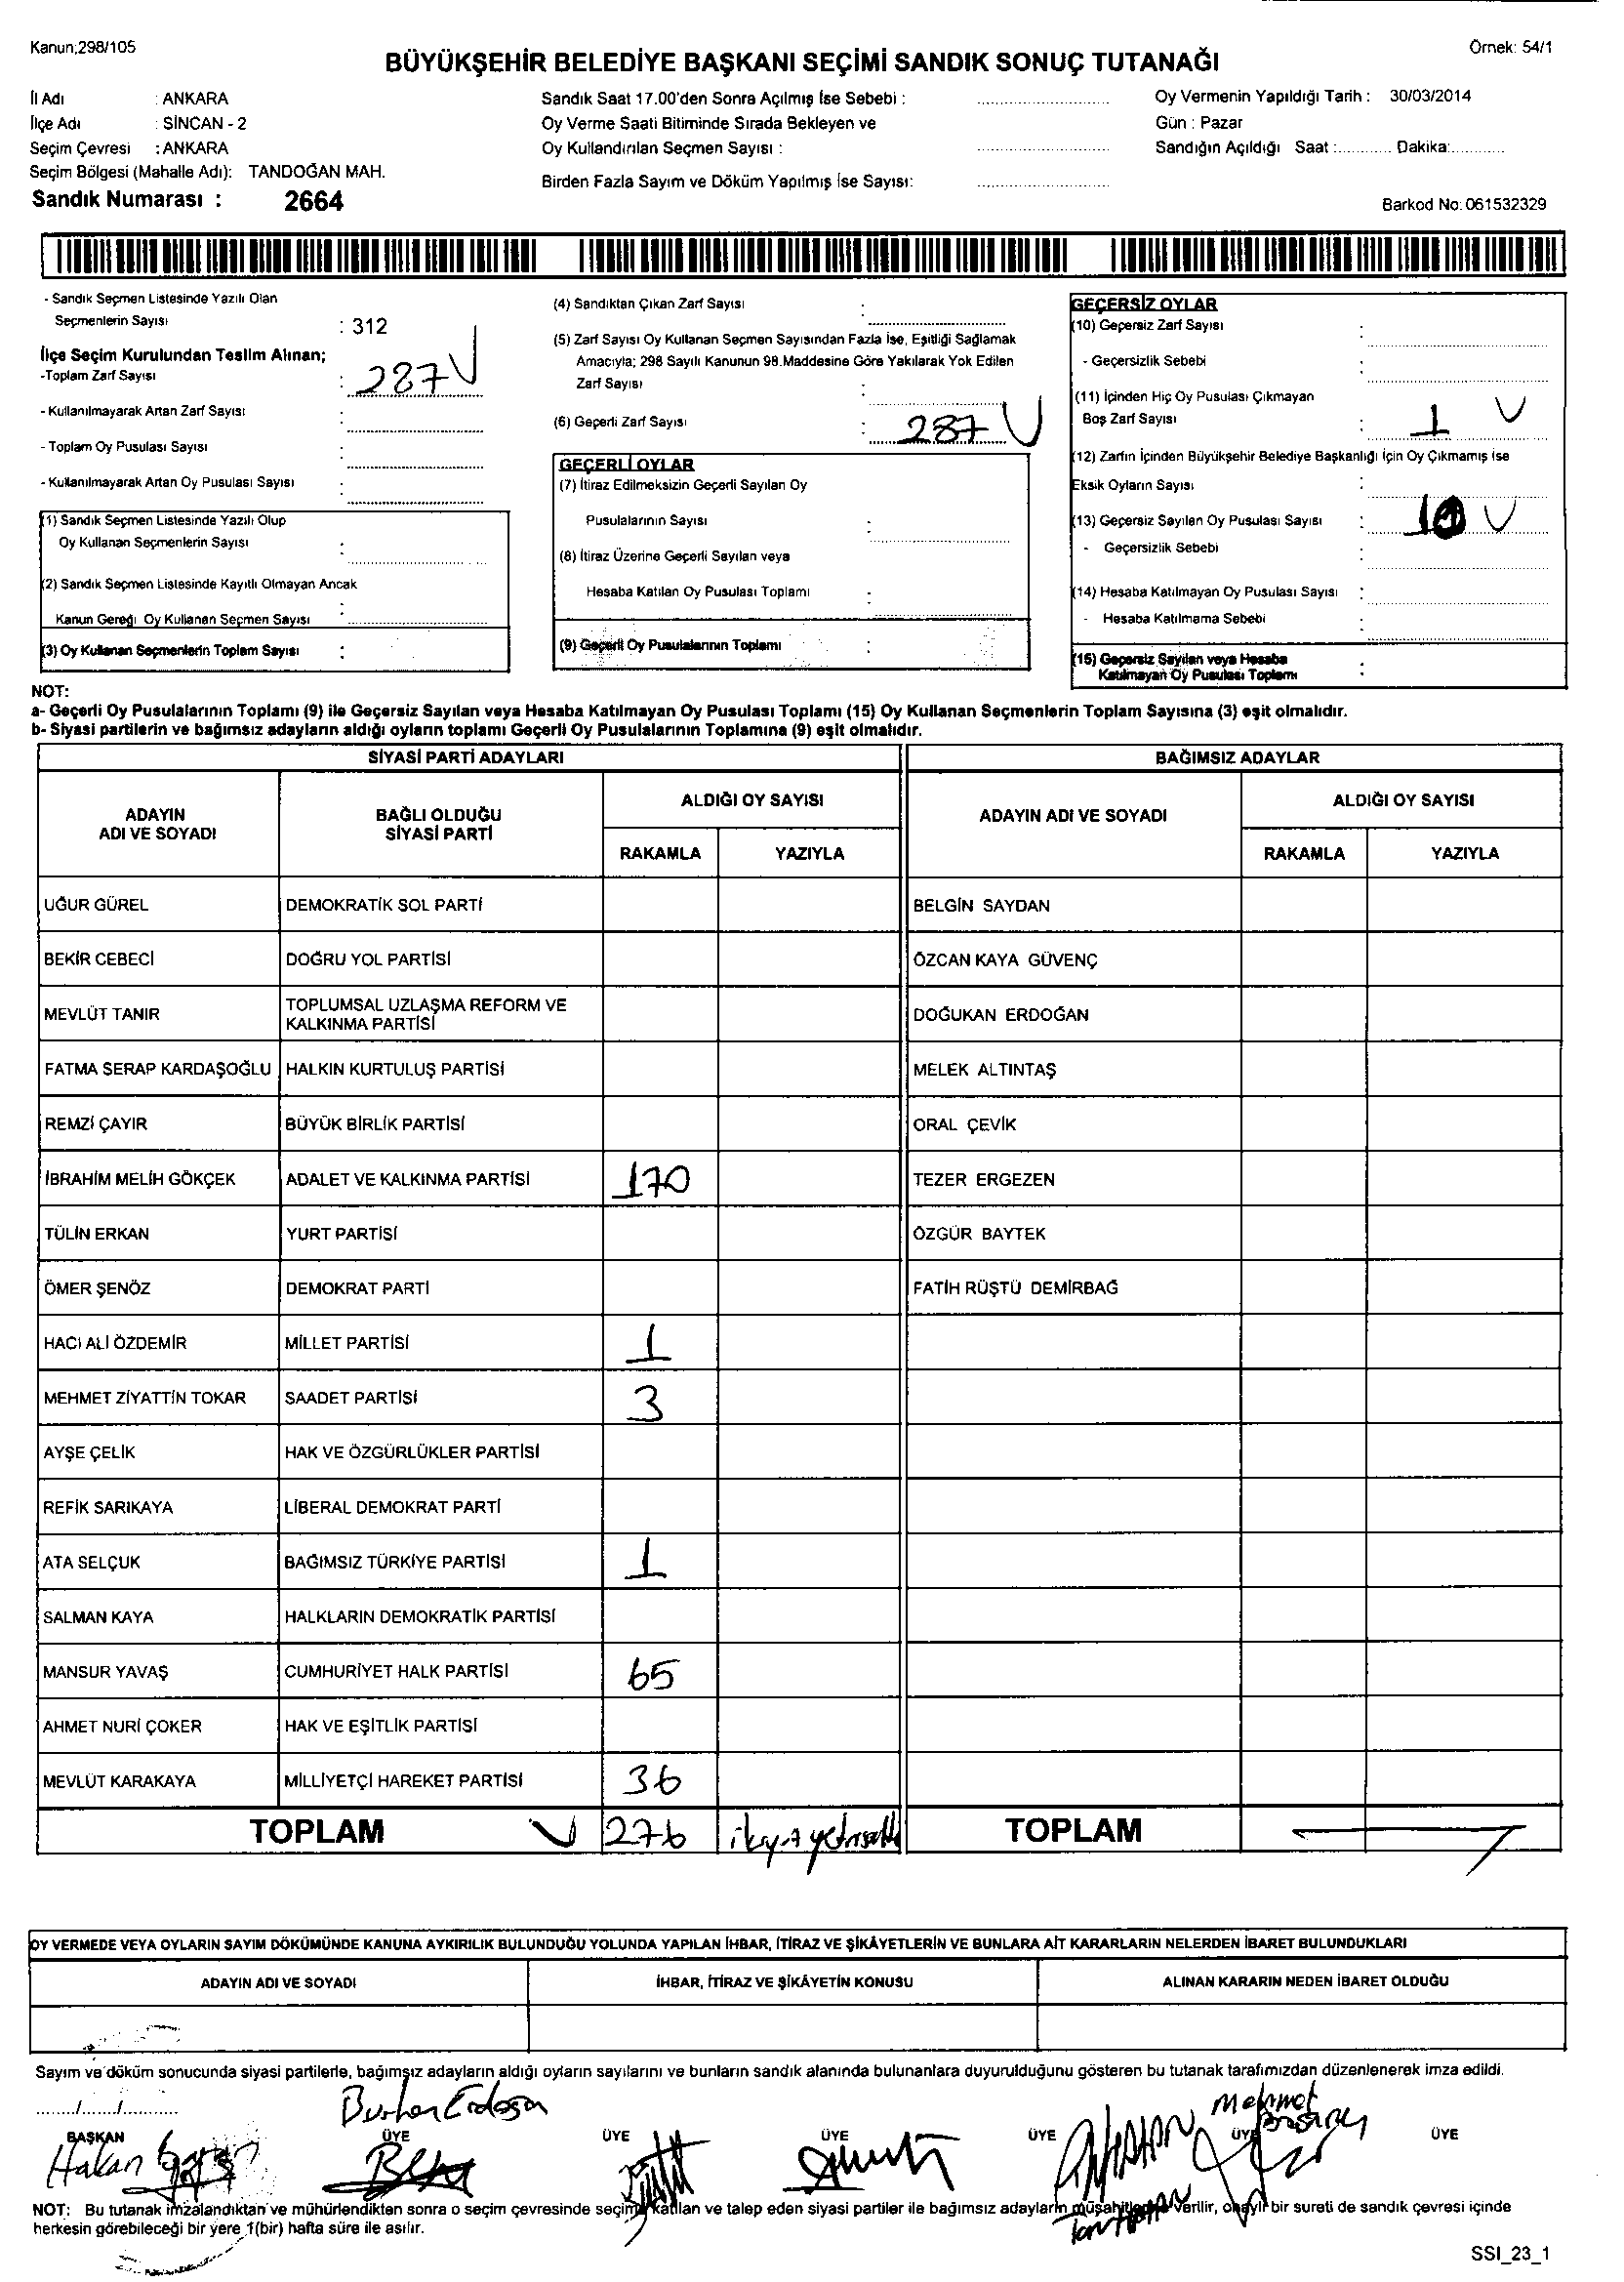 Kanun;298/105
Örnek: 54/1
BÜYÜKŞEHİR BELEDİYE BAŞKANI SEÇİMİ SANDIK SONUÇ TUTANAĞI
İl Adı : ANKARA
İlçe Adı : SİNCAN - 2
Seçim Çevresi : ANKARA
Seçim Bölgesi (Mahalle Adı): TANDOĞAN MAH.
Sandık Numarası : 2664
Sandık Saat 17.00'den Sonra Açılmış İse Sebebi :
Oy Verme Saati Bitiminde Sırada Bekleyen ve
Oy Kullandırılan Seçmen Sayısı :
Birden Fazla Sayım ve Döküm Yapılmış İse Sayısı:
Oy Vermenin Yapıldığı Tarih : 30/03/2014
Gün : Pazar
Sandığın Açıldığı Saat :............ Dakika:............
Barkod No: 061532329
- Sandık Seçmen Listesinde Yazılı Olan
Seçmenlerin Sayısı : 312
İlçe Seçim Kurulundan Teslim Alınan;
-Toplam Zarf Sayısı : 287
- Kullanılmayarak Artan Zarf Sayısı :
- Toplam Oy Pusulası Sayısı :
- Kullanılmayarak Artan Oy Pusulası Sayısı :
(1) Sandık Seçmen Listesinde Yazılı Olup
Oy Kullanan Seçmenlerin Sayısı :
(2) Sandık Seçmen Listesinde Kayıtlı Olmayan Ancak
Kanun Gereği Oy Kullanan Seçmen Sayısı :
(3) Oy Kullanan Seçmenlerin Toplam Sayısı :
(4) Sandıktan Çıkan Zarf Sayısı :
(5) Zarf Sayısı Oy Kullanan Seçmen Sayısından Fazla İse, Eşitliği Sağlamak
Amacıyla; 298 Sayılı Kanunun 98.Maddesine Göre Yakılarak Yok Edilen
Zarf Sayısı :
(6) Geçerli Zarf Sayısı : 287
GEÇERLİ OYLAR
(7) İtiraz Edilmeksizin Geçerli Sayılan Oy
Pusulalarının Sayısı :
(8) İtiraz Üzerine Geçerli Sayılan veya
Hesaba Katılan Oy Pusulası Toplamı :
(9) Geçerli Oy Pusulalarının Toplamı :
GEÇERSİZ OYLAR
(10) Geçersiz Zarf Sayısı :
- Geçersizlik Sebebi :
(11) İçinden Hiç Oy Pusulası Çıkmayan
Boş Zarf Sayısı : 1
(12) Zarfın İçinden Büyükşehir Belediye Başkanlığı İçin Oy Çıkmamış İse
Eksik Oyların Sayısı :
(13) Geçersiz Sayılan Oy Pusulası Sayısı :
- Geçersizlik Sebebi :
(14) Hesaba Katılmayan Oy Pusulası Sayısı :
- Hesaba Katılmama Sebebi :
(15) Geçersiz Sayılan veya Hesaba
Katılmayan Oy Pusulası Toplamı :
NOT:
a- Geçerli Oy Pusulalarının Toplamı (9) ile Geçersiz Sayılan veya Hesaba Katılmayan Oy Pusulası Toplamı (15) Oy Kullanan Seçmenlerin Toplam Sayısına (3) eşit olmalıdır.
b- Siyasi partilerin ve bağımsız adayların aldığı oyların toplamı Geçerli Oy Pusulalarının Toplamına (9) eşit olmalıdır.
SİYASİ PARTİ ADAYLARI BAĞIMSIZ ADAYLAR
ADAYIN ADI VE SOYADI BAĞLI OLDUĞU SİYASİ PARTİ ALDIĞI OY SAYISI ADAYIN ADI VE SOYADI ALDIĞI OY SAYISI
RAKAMLA YAZIYLA RAKAMLA YAZIYLA
UĞUR GÜREL DEMOKRATİK SOL PARTİ BELGİN SAYDAN
BEKİR CEBECİ DOĞRU YOL PARTİSİ ÖZCAN KAYA GÜVENÇ
MEVLÜT TANIR TOPLUMSAL UZLAŞMA REFORM VE KALKINMA PARTİSİ DOĞUKAN ERDOĞAN
FATMA SERAP KARDAŞOĞLU HALKIN KURTULUŞ PARTİSİ MELEK ALTINTAŞ
REMZİ ÇAYIR BÜYÜK BİRLİK PARTİSİ ORAL ÇEVİK
İBRAHİM MELİH GÖKÇEK ADALET VE KALKINMA PARTİSİ 170 TEZER ERGEZEN
TÜLİN ERKAN YURT PARTİSİ ÖZGÜR BAYTEK
ÖMER ŞENÖZ DEMOKRAT PARTİ FATİH RÜŞTÜ DEMİRBAĞ
HACI ALİ ÖZDEMİR MİLLET PARTİSİ 1
MEHMET ZİYATTİN TOKAR SAADET PARTİSİ 3
AYŞE ÇELİK HAK VE ÖZGÜRLÜKLER PARTİSİ
REFİK SARIKAYA LİBERAL DEMOKRAT PARTİ
ATA SELÇUK BAĞIMSIZ TÜRKİYE PARTİSİ 1
SALMAN KAYA HALKLARIN DEMOKRATİK PARTİSİ
MANSUR YAVAŞ CUMHURİYET HALK PARTİSİ 65
AHMET NURİ ÇOKER HAK VE EŞİTLİK PARTİSİ
MEVLÜT KARAKAYA MİLLİYETÇİ HAREKET PARTİSİ 36
TOPLAM 276 TOPLAM
OY VERMEDE VEYA OYLARIN SAYIM DÖKÜMÜNDE KANUNA AYKIRILIK BULUNDUĞU YOLUNDA YAPILAN İHBAR, İTİRAZ VE ŞİKÂYETLERİN VE BUNLARA AİT KARARLARIN NELERDEN İBARET BULUNDUKLARI
ADAYIN ADI VE SOYADI İHBAR, İTİRAZ VE ŞİKÂYETİN KONUSU ALINAN KARARIN NEDEN İBARET OLDUĞU
Sayım ve döküm sonucunda siyasi partilerle, bağımsız adayların aldığı oyların sayılarını ve bunların sandık alanında bulunanlara duyurulduğunu gösteren bu tutanak tarafımızdan düzenlenerek imza edildi.
......./......./..........
Burhan Erdoğan Mehmet
BAŞKAN ÜYE ÜYE ÜYE ÜYE ÜYE ÜYE
Hakan
NOT: Bu tutanak imzalandıktan ve mühürlendikten sonra o seçim çevresinde seçime katılan ve talep eden siyasi partiler ile bağımsız adayların müşahitlerine verilir, onaylı bir sureti de sandık çevresi içinde
herkesin görebileceği bir yere 1(bir) hafta süre ile asılır.
SSI_23_1